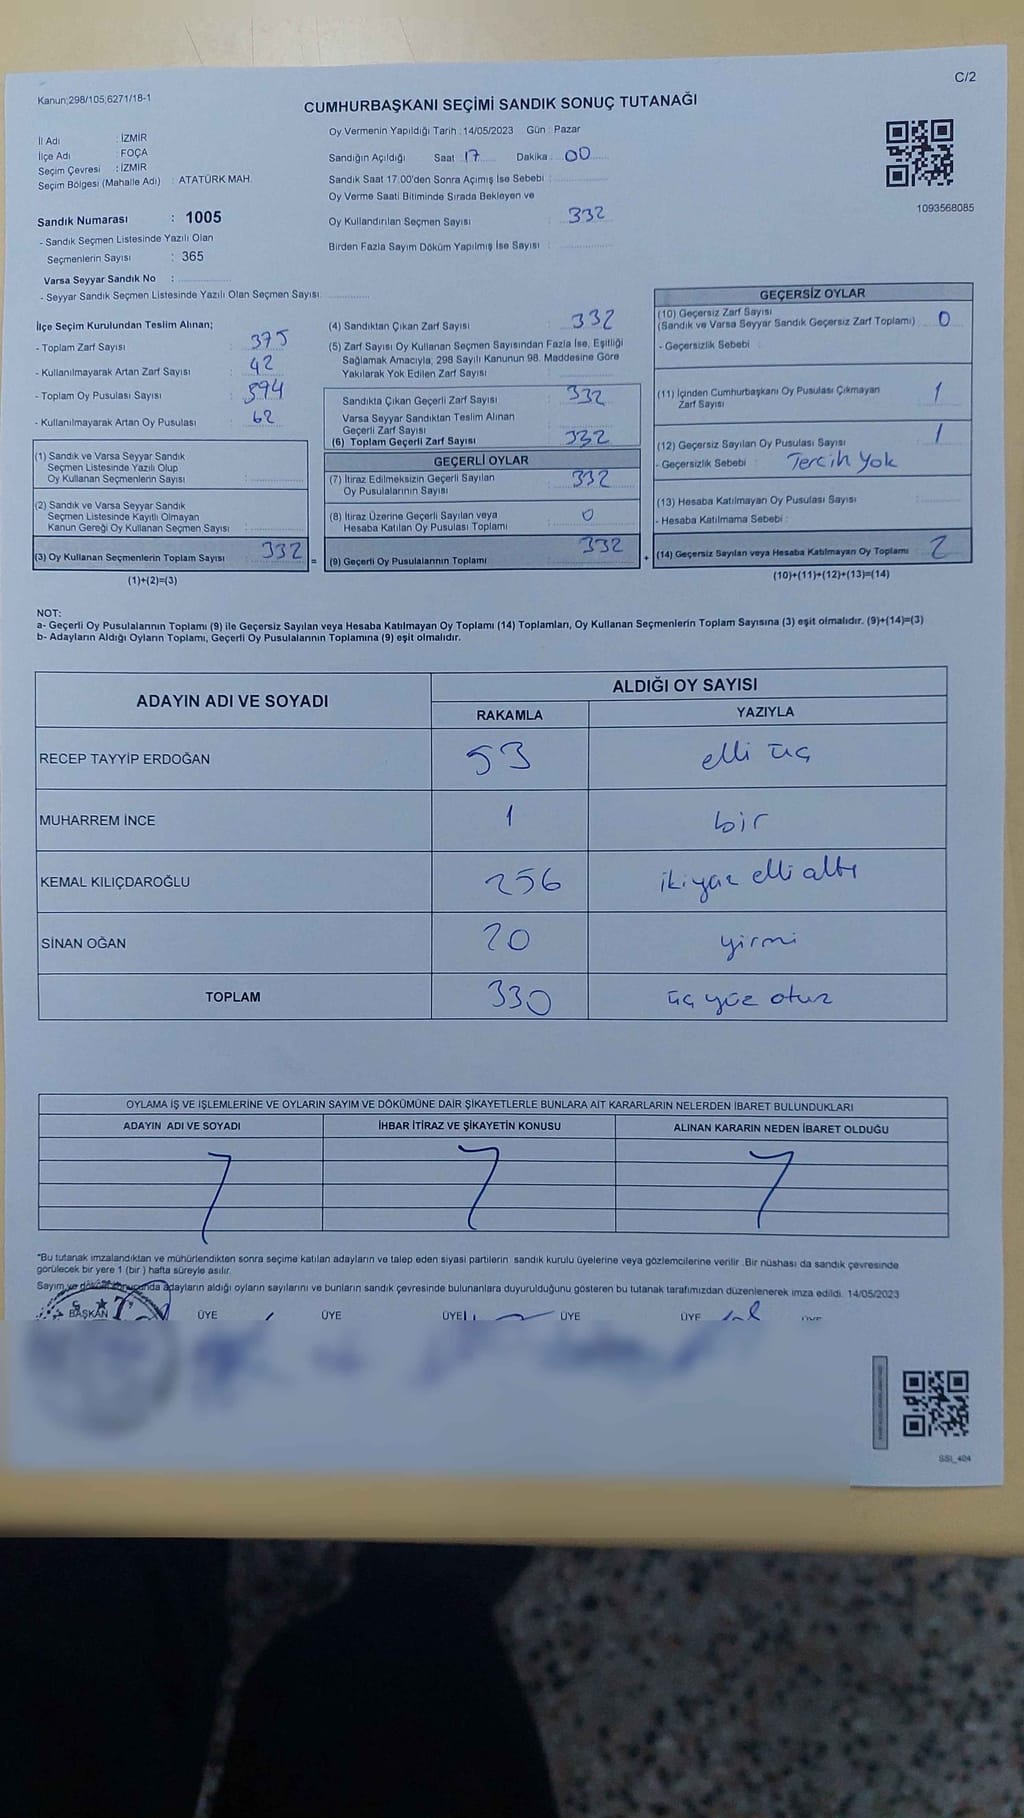 C/2
Kanun;298/105;6271/18-1
CUMHURBAŞKANI SEÇİMİ SANDIK SONUÇ TUTANAĞI
İl Adı : İZMİR
İlçe Adı : FOÇA
Seçim Çevresi : İZMİR
Seçim Bölgesi (Mahalle Adı) : ATATÜRK MAH.
Oy Vermenin Yapıldığı Tarih : 14/05/2023 Gün : Pazar
Sandığın Açıldığı Saat 17 Dakika : 00
Sandık Saat 17:00'den Sonra Açımış İse Sebebi :
Oy Verme Saati Bitiminde Sırada Bekleyen ve
Oy Kullandırılan Seçmen Sayısı : 332
Birden Fazla Sayım Döküm Yapılmış İse Sayısı :
1093568085
Sandık Numarası : 1005
- Sandık Seçmen Listesinde Yazılı Olan
Seçmenlerin Sayısı : 365
Varsa Seyyar Sandık No :
- Seyyar Sandık Seçmen Listesinde Yazılı Olan Seçmen Sayısı:
İlçe Seçim Kurulundan Teslim Alınan;
- Toplam Zarf Sayısı : 375
- Kullanılmayarak Artan Zarf Sayısı : 42
- Toplam Oy Pusulası Sayısı : 394
- Kullanılmayarak Artan Oy Pusulası : 62
(1) Sandık ve Varsa Seyyar Sandık
Seçmen Listesinde Yazılı Olup
Oy Kullanan Seçmenlerin Sayısı :
(2) Sandık ve Varsa Seyyar Sandık
Seçmen Listesinde Kayıtlı Olmayan
Kanun Gereği Oy Kullanan Seçmen Sayısı :
(3) Oy Kullanan Seçmenlerin Toplam Sayısı 332 =
(1)+(2)=(3)
(4) Sandıktan Çıkan Zarf Sayısı : 332
(5) Zarf Sayısı Oy Kullanan Seçmen Sayısından Fazla İse, Eşitliği
Sağlamak Amacıyla; 298 Sayılı Kanunun 98. Maddesine Göre
Yakılarak Yok Edilen Zarf Sayısı :
Sandıkta Çıkan Geçerli Zarf Sayısı : 332
Varsa Seyyar Sandıktan Teslim Alınan
Geçerli Zarf Sayısı :
(6) Toplam Geçerli Zarf Sayısı : 332
GEÇERLİ OYLAR
(7) İtiraz Edilmeksizin Geçerli Sayılan : 332
Oy Pusulalarının Sayısı
(8) İtiraz Üzerine Geçerli Sayılan veya : 0
Hesaba Katılan Oy Pusulası Toplamı
(9) Geçerli Oy Pusulalarının Toplamı 332 +
GEÇERSİZ OYLAR
(10) Geçersiz Zarf Sayısı
(Sandık ve Varsa Seyyar Sandık Geçersiz Zarf Toplamı) : 0
- Geçersizlik Sebebi :
(11) İçinden Cumhurbaşkanı Oy Pusulası Çıkmayan
Zarf Sayısı : 1
(12) Geçersiz Sayılan Oy Pusulası Sayısı : 1
- Geçersizlik Sebebi : Tercih yok
(13) Hesaba Katılmayan Oy Pusulası Sayısı :
- Hesaba Katılmama Sebebi :
(14) Geçersiz Sayılan veya Hesaba Katılmayan Oy Toplamı 2
(10)+(11)+(12)+(13)=(14)
NOT:
a- Geçerli Oy Pusulalarının Toplamı (9) ile Geçersiz Sayılan veya Hesaba Katılmayan Oy Toplamı (14) Toplamları, Oy Kullanan Seçmenlerin Toplam Sayısına (3) eşit olmalıdır. (9)+(14)=(3)
b- Adayların Aldığı Oyların Toplamı, Geçerli Oy Pusulalarının Toplamına (9) eşit olmalıdır.
ADAYIN ADI VE SOYADI ALDIĞI OY SAYISI
RAKAMLA YAZIYLA
RECEP TAYYİP ERDOĞAN 53 elli üç
MUHARREM İNCE 1 bir
KEMAL KILIÇDAROĞLU 256 ikiyüz elli altı
SİNAN OĞAN 20 yirmi
TOPLAM 330 üç yüz otuz
OYLAMA İŞ VE İŞLEMLERİNE VE OYLARIN SAYIM VE DÖKÜMÜNE DAİR ŞİKAYETLERLE BUNLARA AİT KARARLARIN NELERDEN İBARET BULUNDUKLARI
ADAYIN ADI VE SOYADI İHBAR İTİRAZ VE ŞİKAYETİN KONUSU ALINAN KARARIN NEDEN İBARET OLDUĞU
*Bu tutanak imzalandıktan ve mühürlendikten sonra seçime katılan adayların ve talep eden siyasi partilerin sandık kurulu üyelerine veya gözlemcilerine verilir. Bir nüshası da sandık çevresinde
görülecek bir yere 1 (bir) hafta süreyle asılır.
Sayım ve döküm sonucunda adayların aldığı oyların sayılarını ve bunların sandık çevresinde bulunanlara duyurulduğunu gösteren bu tutanak tarafımızdan düzenlenerek imza edildi. 14/05/2023
BAŞKAN ÜYE ÜYE ÜYE ÜYE ÜYE
SSI_404